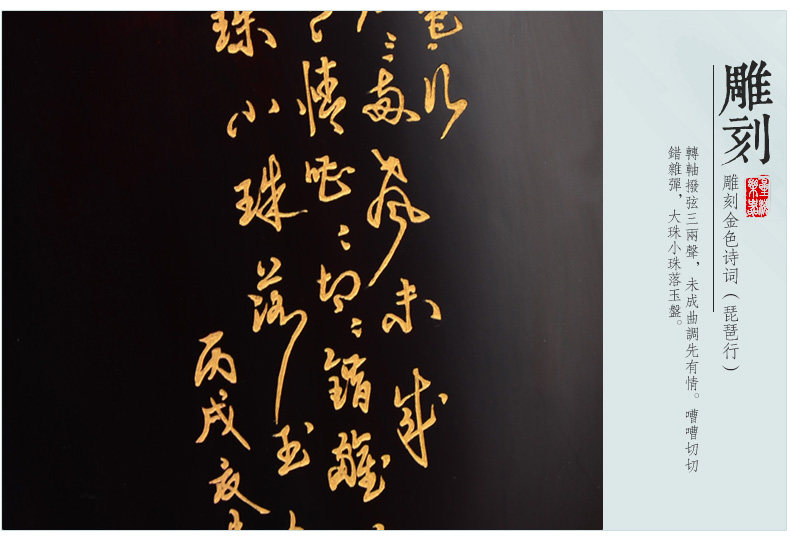 雕刻
雕刻金色诗词(琵琶行)
轉軸撥弦三兩聲，未成曲調先有情。嘈嘈切切
錯雜彈，大珠小珠落玉盤。
行
未成
情嘈〻切〻錯雜
珠小珠落玉
丙戌